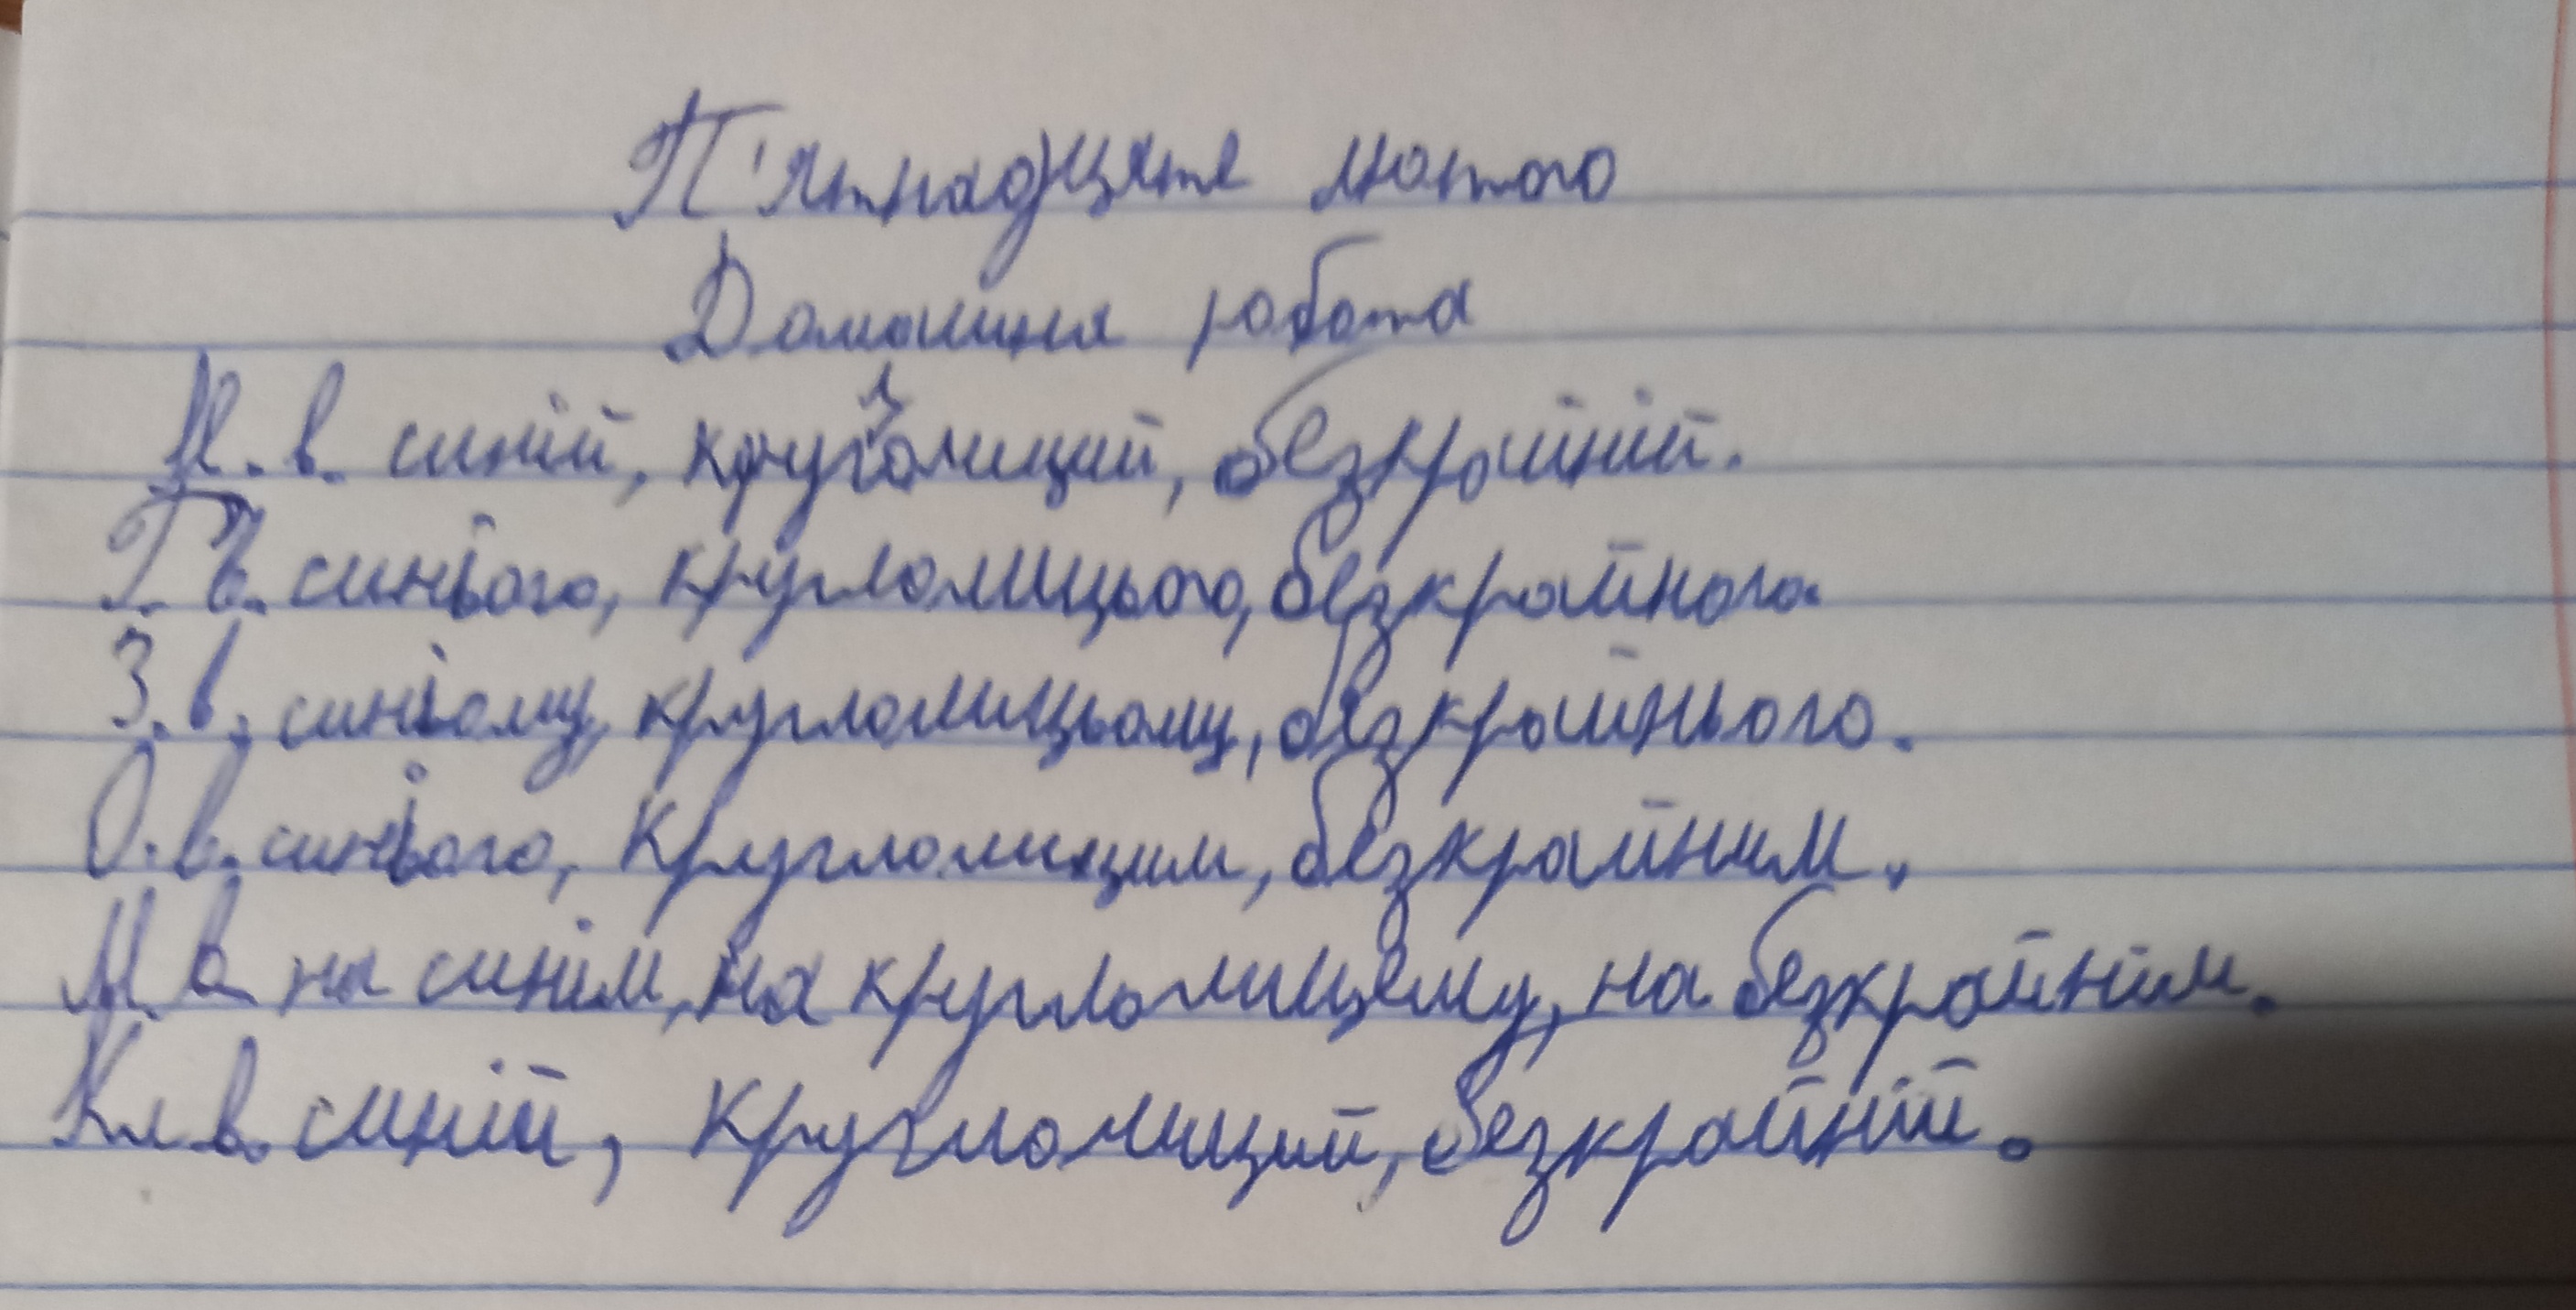 П'ятнадцяте лютого
Домашня робота
Н. в. синій, круглолиций, безкрайній.
Г. в. синього, круглолицього, безкрайнього
З. в. синьому, круглолицьому, безкрайнього.
О. в. синього, круглолицим, безкрайним.
М. в. на синім, на круглолицему, на безкрайнім.
Кл. в. синій, круглолиций, безкрайній.